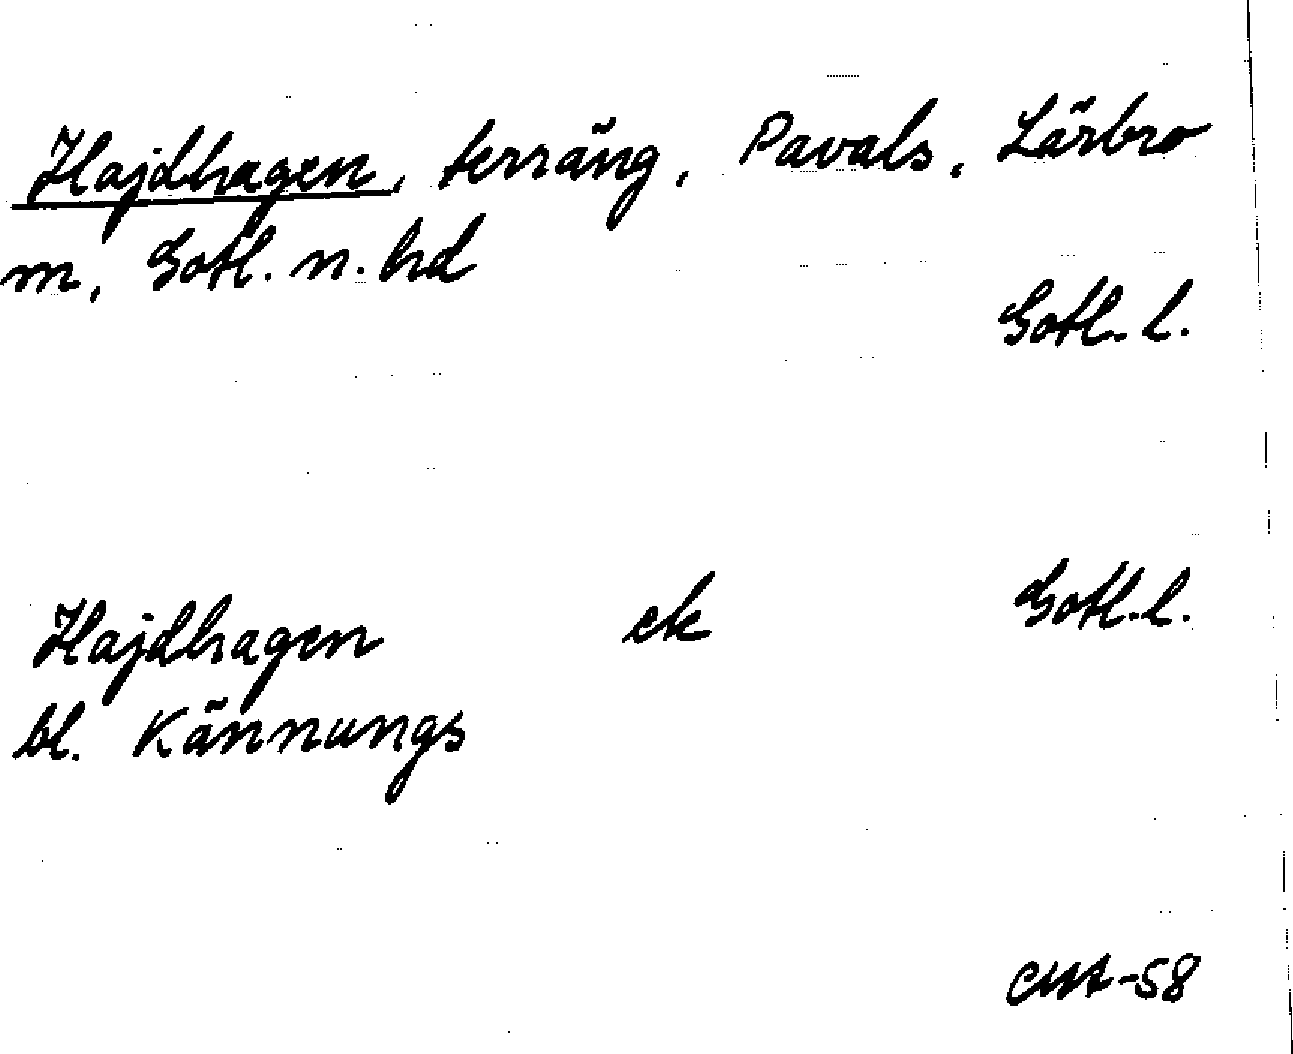 Hajdhagen, terräng, Pavals, Lärbro
m, Gotl. n. hd
Gotl. l.
Hajdhagen ek Gotl. l.
bl. Kännungs